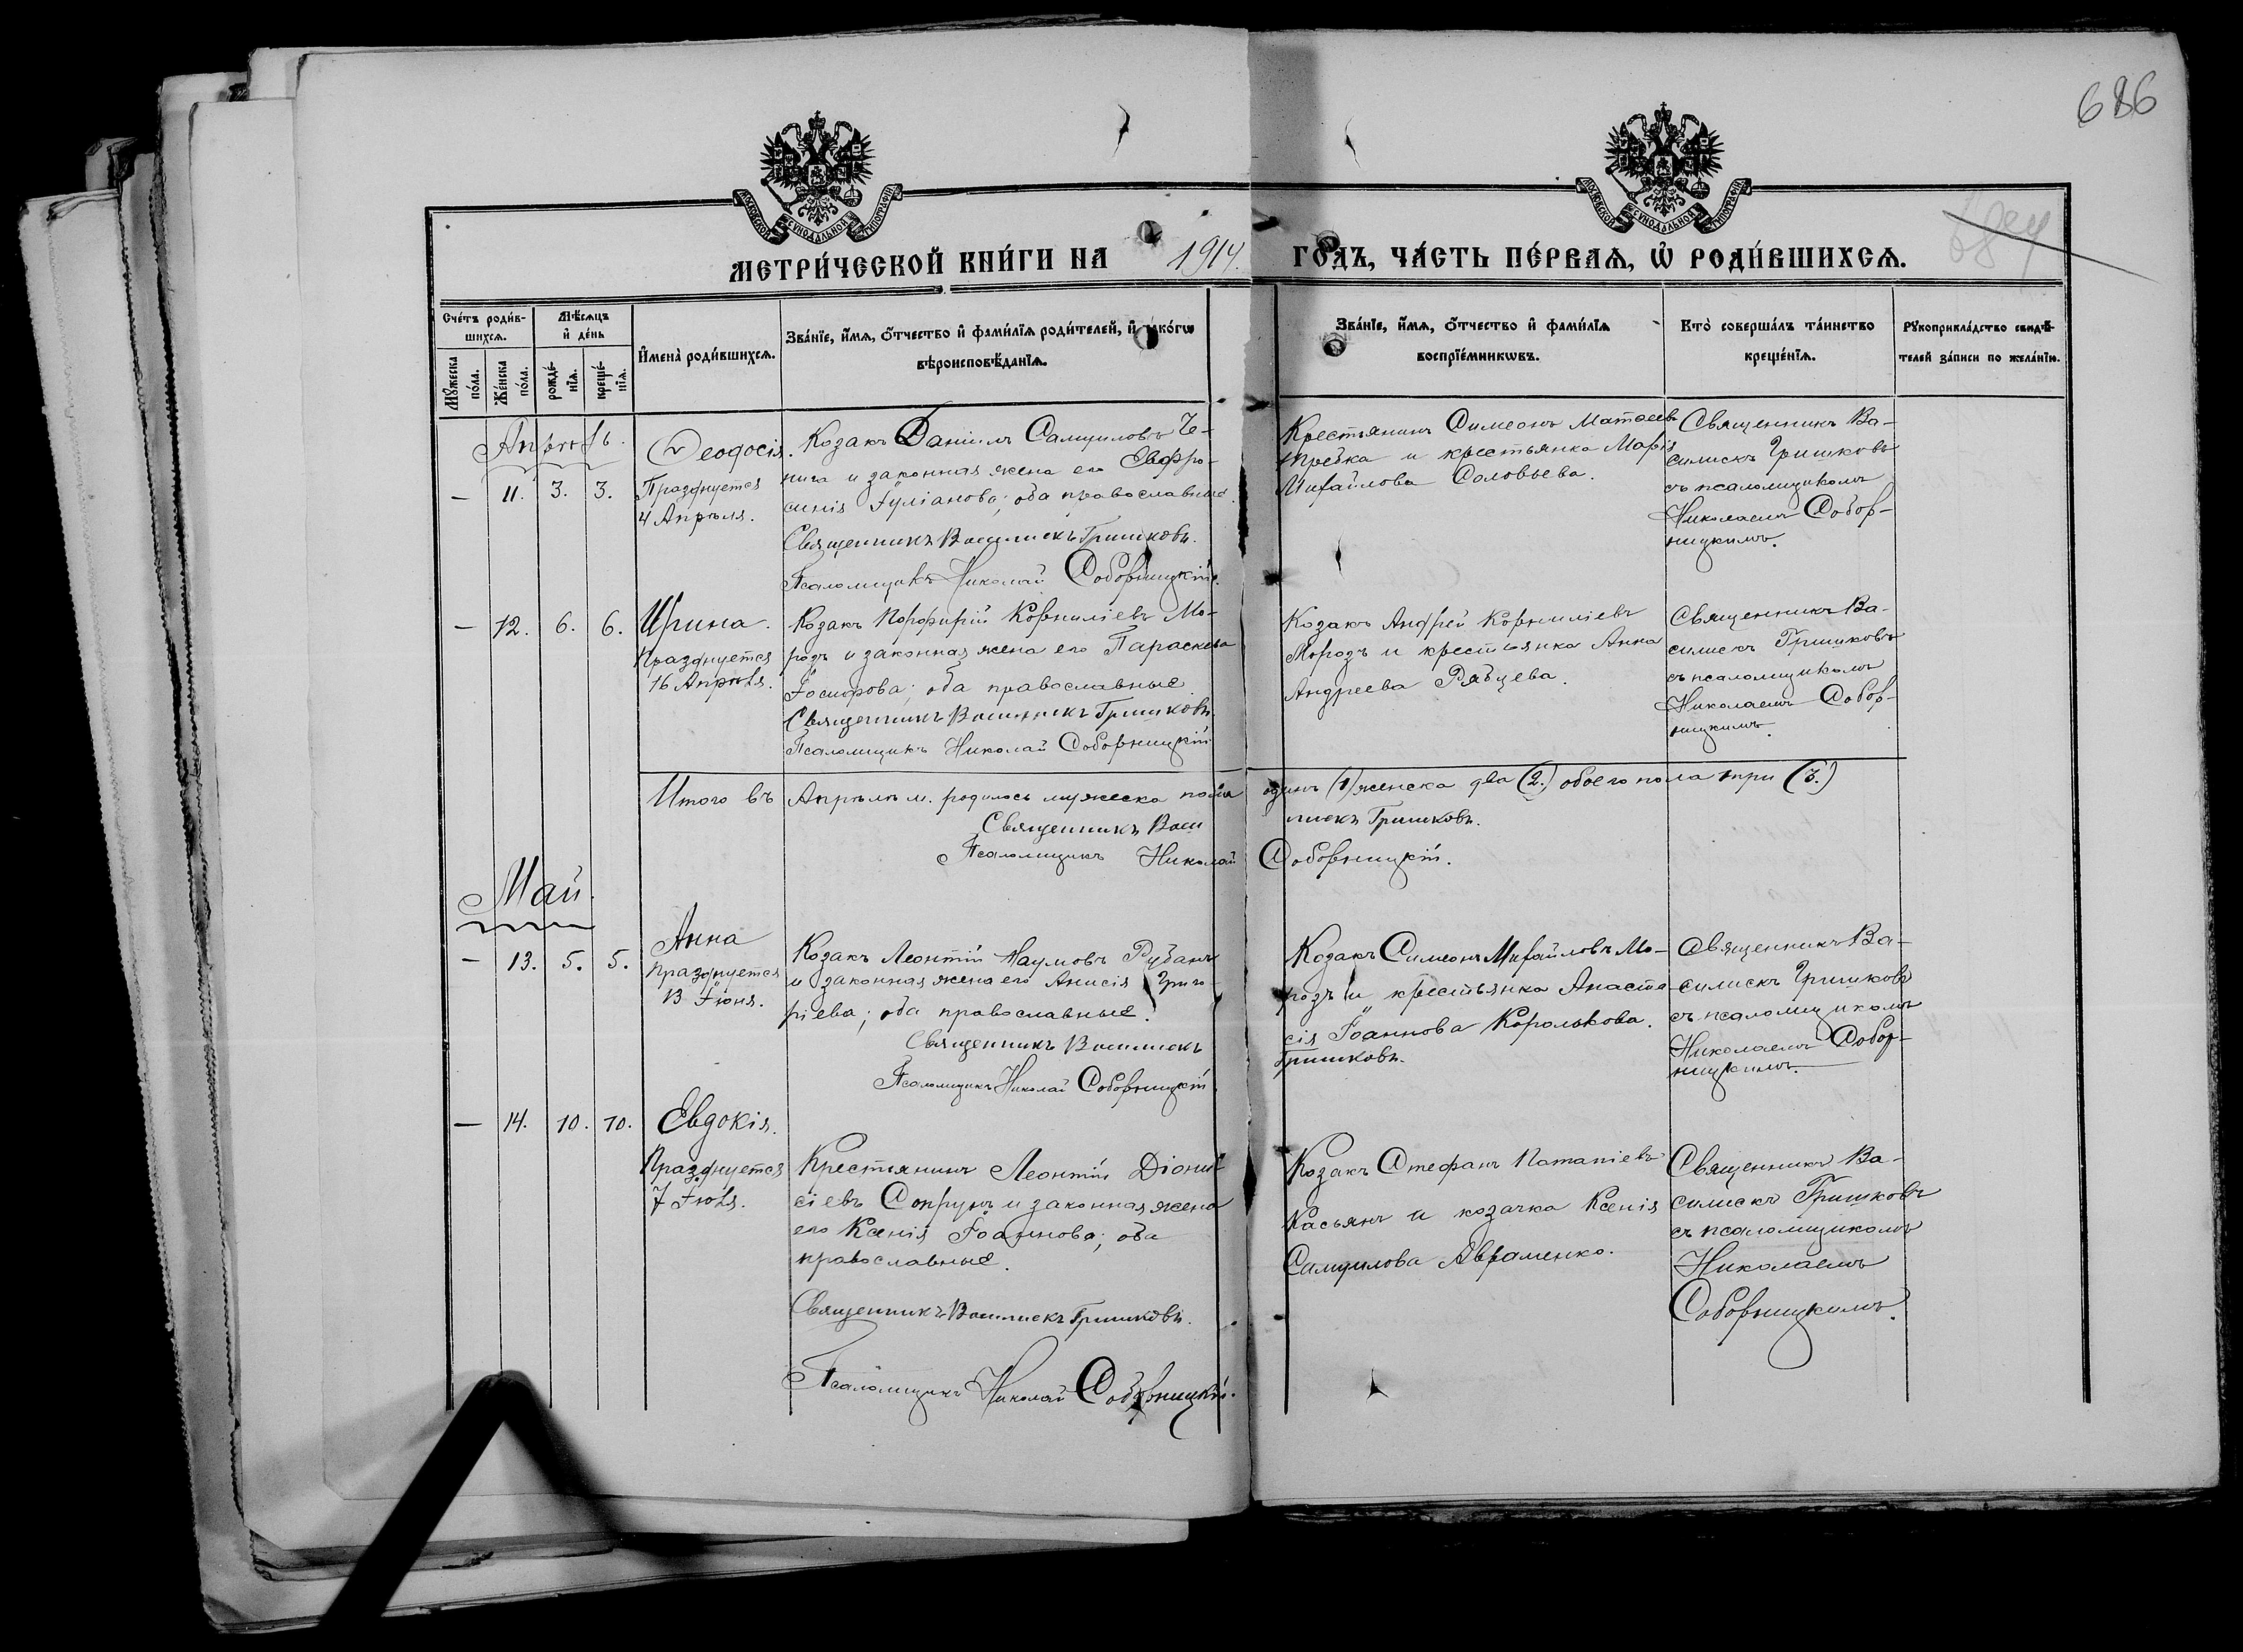 686
МОСКОВСКОЙ СУНОДАЛЬНОЙ ТИПОГРАФІИ
МОСКОВСКОЙ СУНОДАЛЬНОЙ ТИПОГРАФІИ
МЕТРИ́ЧЕСКОЙ КНИ́ГИ НА 1914. ГО́ДЪ, ЧА́СТЬ ПЕ́РВАѦ, Ѡ҆ РОДИ́ВШИХСѦ.
Сче́тъ роди́в-
шихсѧ.
Мѣ́сѧцъ
и҆ де́нь
Мꙋ́жеска
по́ла.
Же́нска
по́ла.
рожде́-
нїѧ.
креще́-
нїѧ.
И҆мена̀ роди́вшихсѧ.
Зва́нїе, и҆́мѧ, ѻ҆́тчество и҆ фами́лїѧ роди́телей, и҆ како́гѡ
вѣроисповѣ́данїѧ.
Зва́нїе, и҆́мѧ, ѻ҆́тчество и҆ фами́лїѧ
воспрїе́мникѡвъ.
Кто̀ соверша́лъ та́инство
креще́нїѧ.
Рꙋкоприкла́дство свидѣ́-
телей за́писи по жела́нїю.
Апрѣль.
— 11. 3. 3.
Ѳеодосія.
Празднуется
4 Апрѣля.
Козакъ Даніилъ Самуиловъ Че-
пига и законная жена его Евфро-
синія Іуліанова; оба православные.
Священникъ Василискъ Гришковъ.
Псаломщикъ Николай Соборницкій.
Крестьянинъ Симеонъ Матѳеевъ
и крестьянка Марія
Михайлова Соловьева.
Священникъ Ва-
силискъ Гришковъ
съ псаломщикомъ
Николаемъ Собор-
ницкимъ.
— 12. 6. 6.
Ирина.
Празднуется
16 Апрѣля.
Козакъ Порфирій Корниліевъ Мо-
розъ и законная жена его Параскева
Іосифова; оба православные
Священникъ Василискъ Гришковъ.
Псаломщикъ Николай Соборницкій
Козакъ Андрей Корниліевъ
Морозъ и крестьянка Анна
Андреева Рябцева.
Священникъ Ва-
силискъ Гришковъ
съ псаломщикомъ
Николаемъ Собор-
ницкимъ.
Итого въ Апрѣлѣ м. родилось мужеска пола одинъ (1) женска два (2.) обоего пола три (3.)
Священникъ Василискъ Гришковъ.
Псаломщикъ Николай Соборницкій.
Май.
— 13. 5. 5.
Анна
Празднуется
13 Іюня.
Козакъ Леонтій Наумовъ Рубанъ
и законная жена его Анисія Григо-
ріева; оба православные.
Священникъ Василискъ Гришковъ.
Псаломщикъ Николай Соборницкій.
Козакъ Симеонъ Михайловъ Мо-
розъ и крестьянка Анаста-
сія Іоаннова Королькова.
Священникъ Ва-
силискъ Гришковъ
съ псаломщикомъ
Николаемъ Собор-
ницкимъ.
— 14. 10. 10.
Евдокія.
Празднуется
7 Іюля.
Крестьянинъ Леонтій Діони-
сіевъ Сопрунъ и законная жена
его Ксенія Іоаннова; оба
православные.
Священникъ Василискъ Гришковъ.
Псаломщикъ Николай Соборницкій.
Козакъ Стефанъ Потапіевъ
Касьянъ и козачка Ксенія
Самуилова Авраменко.
Священникъ Ва-
силискъ Гришковъ
съ псаломщикомъ
Николаемъ
Соборницкимъ.